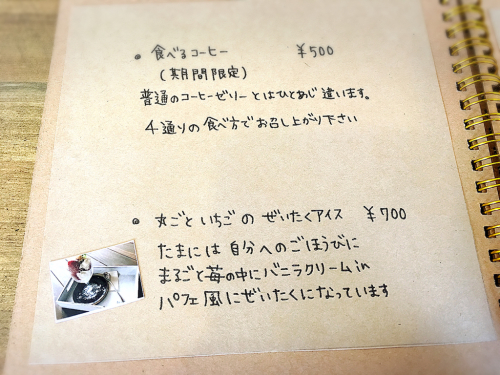 • 食べるコーヒー ¥500
(期間限定)
普通のコーヒーゼリーとはひとあじ違います。
4通りの食べ方でお召し上がり下さい
• 丸ごといちごのぜいたくアイス ¥700
たまには自分へのごほうびに
まるごと苺の中にバニラクリームin
パフェ風にぜいたくになっています